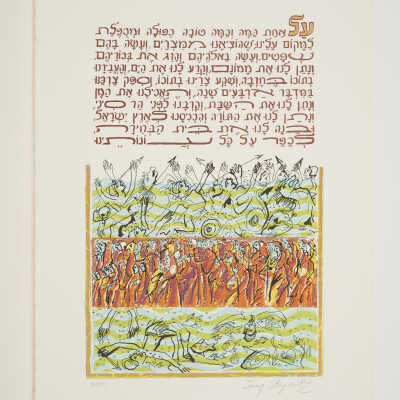 עַל אַחַת כַּמָּה וְכַמָּה טוֹבָה כְפוּלָה וּמְכֻפֶּלֶת
לַמָּקוֹם עָלֵינוּ שֶׁהוֹצִיאָנוּ מִמִּצְרַיִם, וְעָשָׂה בָהֶם
שְׁפָטִים, וְעָשָׂה בֵאלֹהֵיהֶם וְהָרַג אֶת בְּכוֹרֵיהֶם,
וְנָתַן לָנוּ אֶת מָמוֹנָם, וְקָרַע לָנוּ אֶת הַיָּם, וְהֶעֱבִירָנוּ
בְתוֹכוֹ בֶּחָרָבָה, וְשִׁקַּע צָרֵינוּ בְּתוֹכוֹ, וְסִפֵּק צָרְכֵּנוּ
בַּמִּדְבָּר אַרְבָּעִים שָׁנָה, וְהֶאֱכִילָנוּ אֶת הַמָּן
וְנָתַן לָנוּ אֶת הַשַּׁבָּת, וְקֵרְבָנוּ לִפְנֵי הַר סִינַי,
וְנָתַן לָנוּ אֶת הַתּוֹרָה וְהִכְנִיסָנוּ לְאֶרֶץ יִשְׂרָאֵל,
וּבָנָה לָנוּ אֶת בֵּית הַבְּחִירָה,
לְכַפֵּר עַל כָּל עֲוֹנוֹתֵינוּ